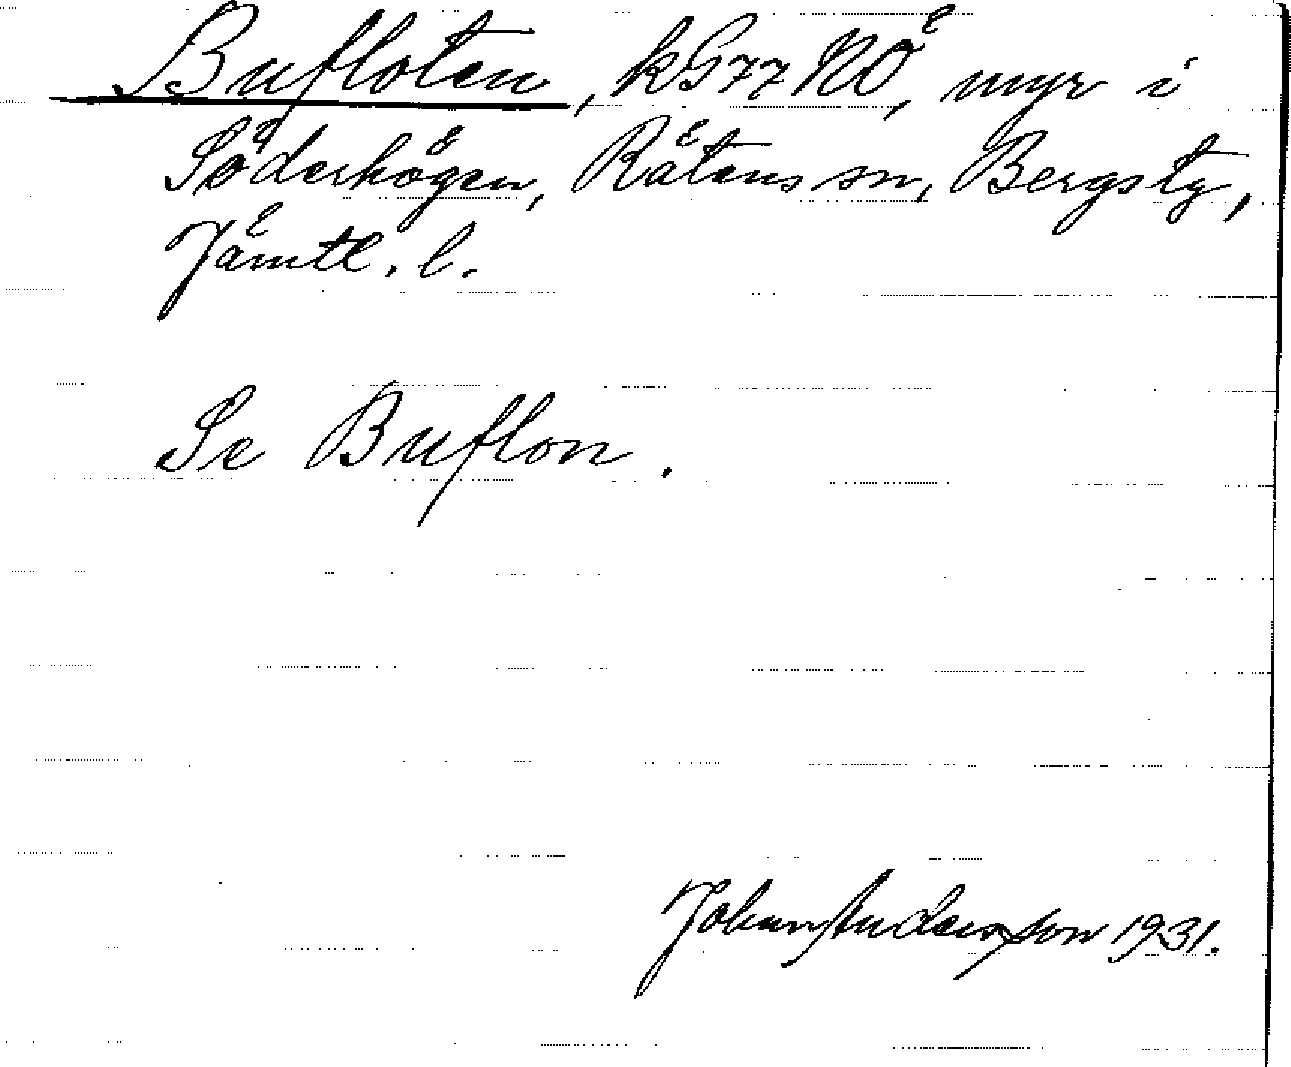 Bufloten, kG77NÖ, myr i
Söderhögen, Rätans sn, Bergs tg,
Jämtl. l.
Se Buflon.
Johan Andersson 1931.